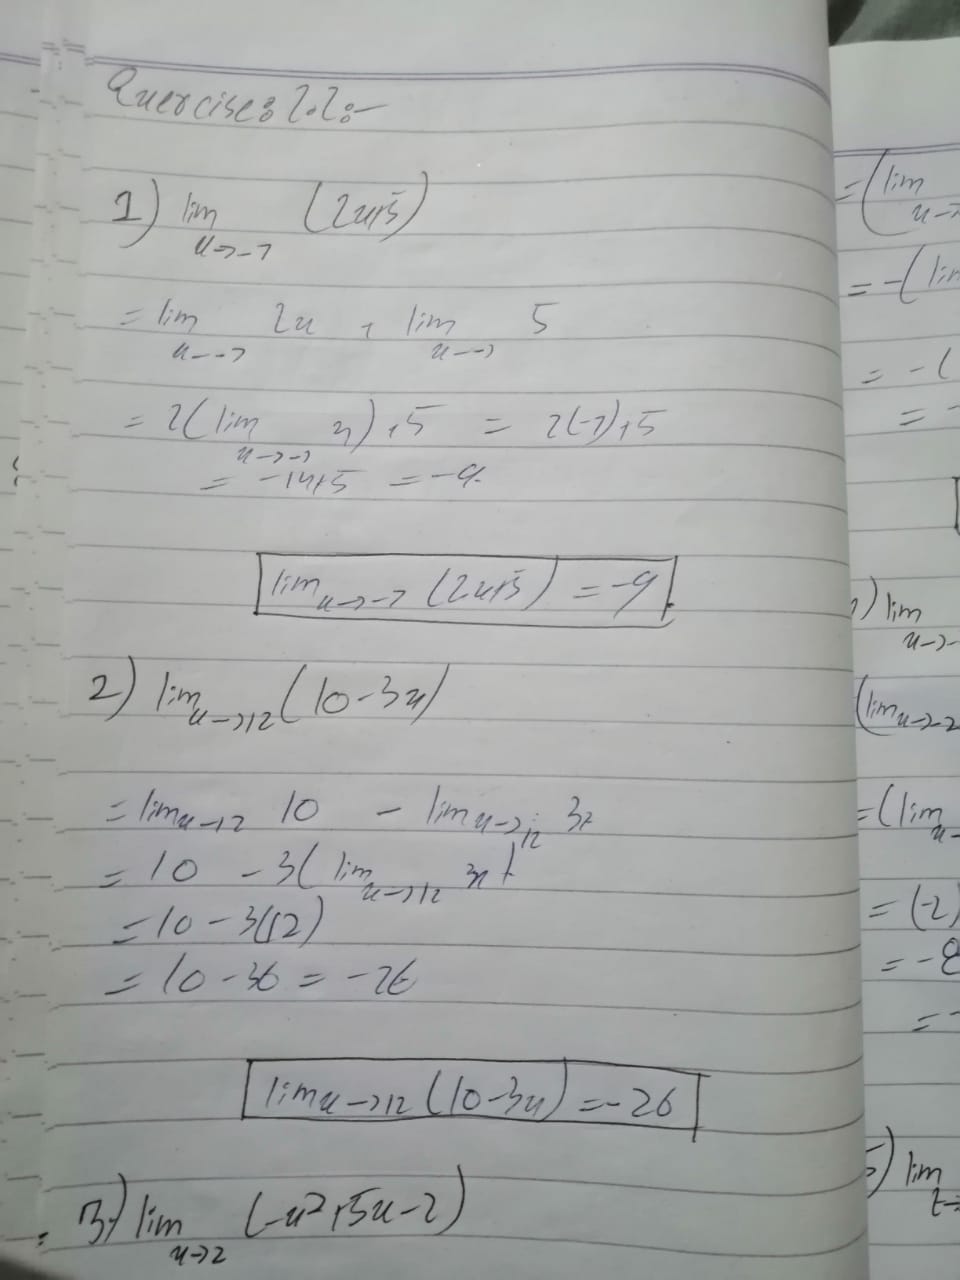 Exercise: 2.2:-
1) lim x→-7 (2x+5)
= lim x→-7 2x + lim x→-7 5
= 2(lim x→-7 x)+5 = 2(-7)+5
= -14+5 = -9.
lim x→-7 (2x+5) = -9.
2) lim x→12 (10-3x)
= lim x→12 10 - lim x→12 3x
= 10 - 3(lim x→12 x)
= 10 - 3(12)
= 10 - 36 = -26
lim x→12 (10-3x) = -26
3) lim x→2 (-x²+5x-2)
= (lim
x→
= -(lim
= -(
= -
) lim
x→-
(lim x→-2
= (lim
x→
= (-2)
= -8
= -
5) lim
t→